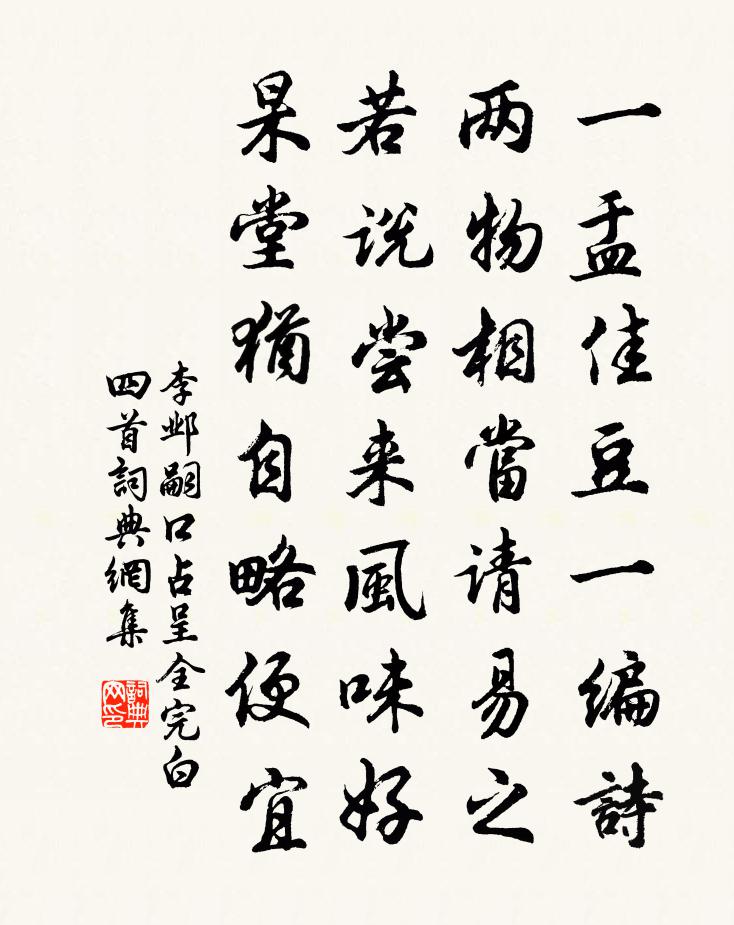 一盂佳豆一编詩
两物相當请易之
若说尝来風味好
杲堂猶自略便宜
李邺嗣口占呈全完白
四首詞典網集
詞典网印